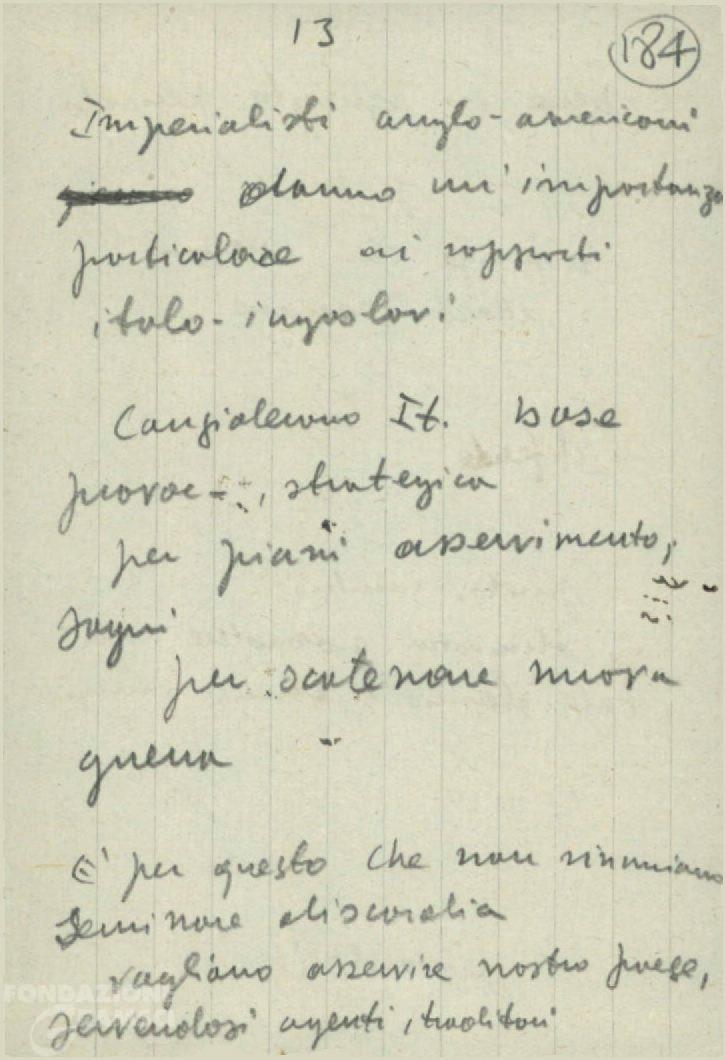 13
184
Imperialisti anglo-americani
danno un'importanza
particolare ai rapporti
italo-iugoslavi
Cangialerano It. base
provoc-, strategica
per piani asservimento,
sogni
per scatenare nuova
guerra
È per questo che non rinunciano
seminare discordia
vogliano asservire nostro paese,
servendosi agenti, traditori
FONDAZIONE